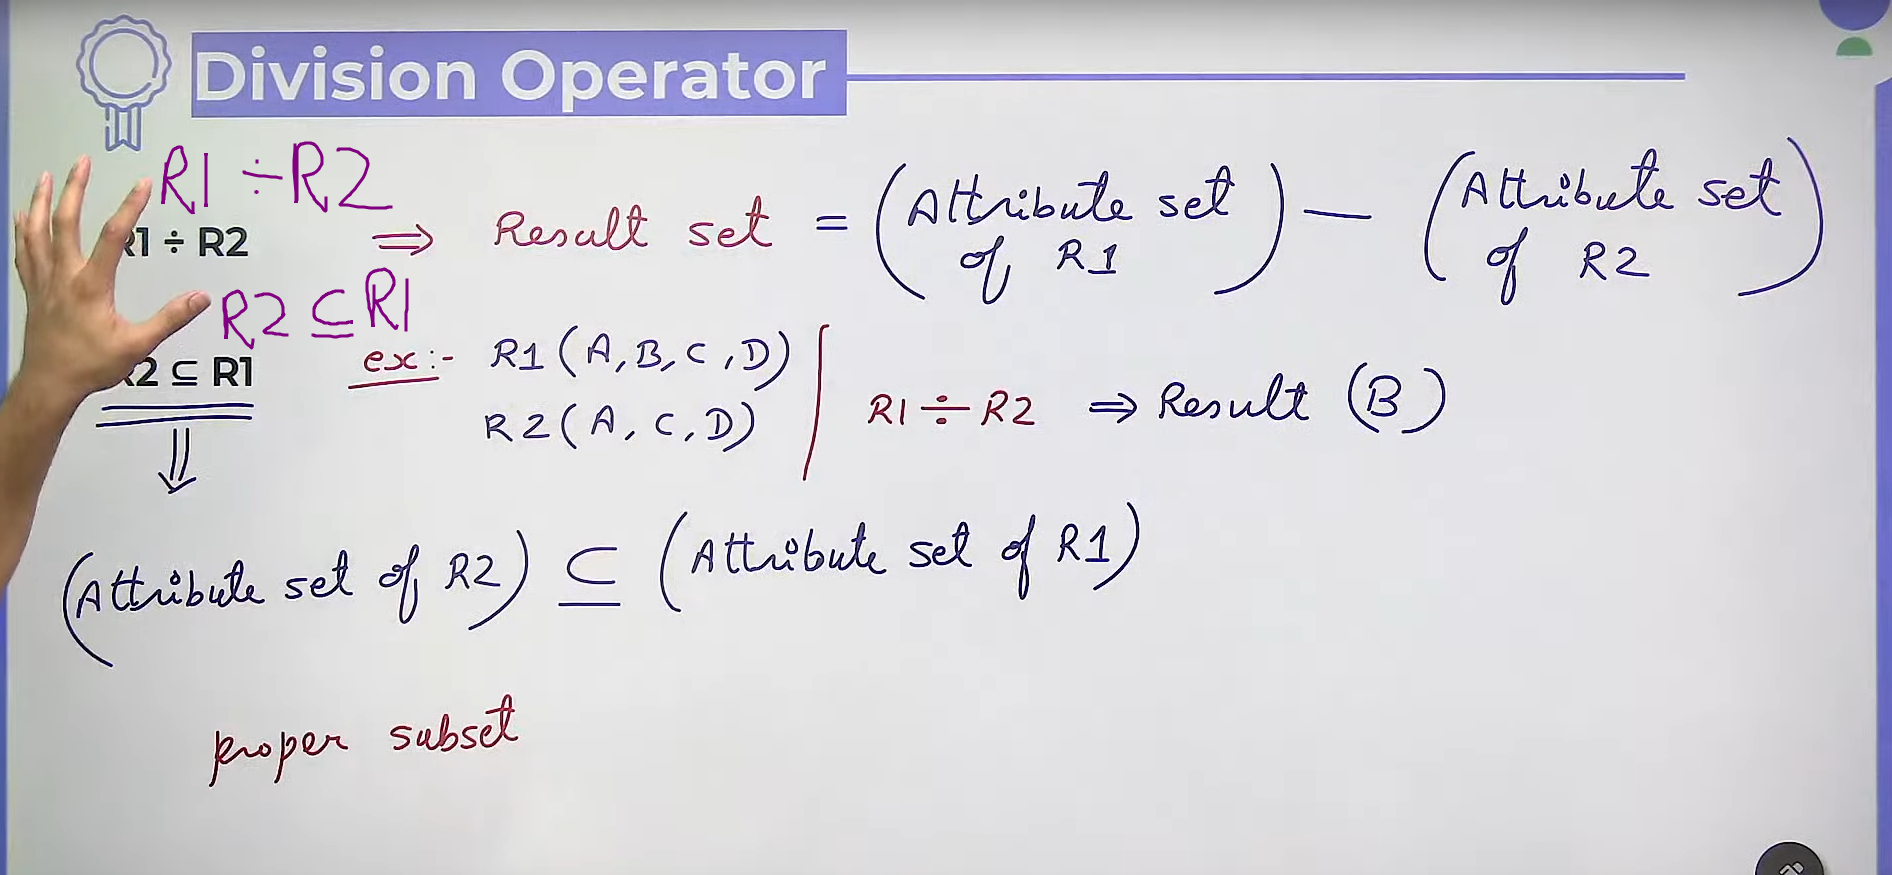 Division Operator
R1 ÷ R2
R1 ÷ R2 ⇒ Result set = (Attribute set of R1) — (Attribute set of R2)
R2 ⊆ R1
R2 ⊆ R1
ex:- R1 (A, B, C, D)
R2 (A, C, D)
R1 ÷ R2 ⇒ Result (B)
(Attribute set of R2) ⊆ (Attribute set of R1)
proper subset